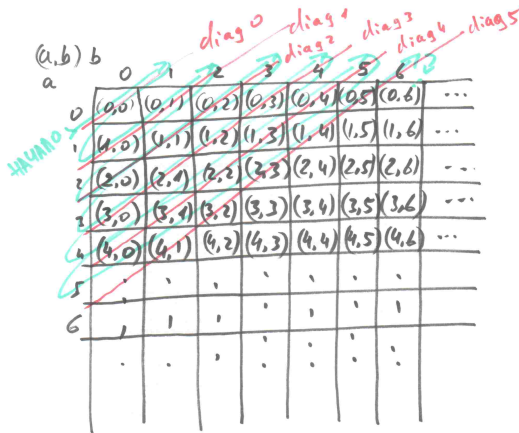 diag 0 diag 1 diag 2 diag 3 diag 4 diag 5
(a,b) b
a
0 1 2 3 4 5 6
0 (0,0) (0,1) (0,2) (0,3) (0,4) (0,5) (0,6) ...
НАЧАЛО
1 (1,0) (1,1) (1,2) (1,3) (1,4) (1,5) (1,6) ...
2 (2,0) (2,1) (2,2) (2,3) (2,4) (2,5) (2,6) ...
3 (3,0) (3,1) (3,2) (3,3) (3,4) (3,5) (3,6) ...
4 (4,0) (4,1) (4,2) (4,3) (4,4) (4,5) (4,6) ...
5
6